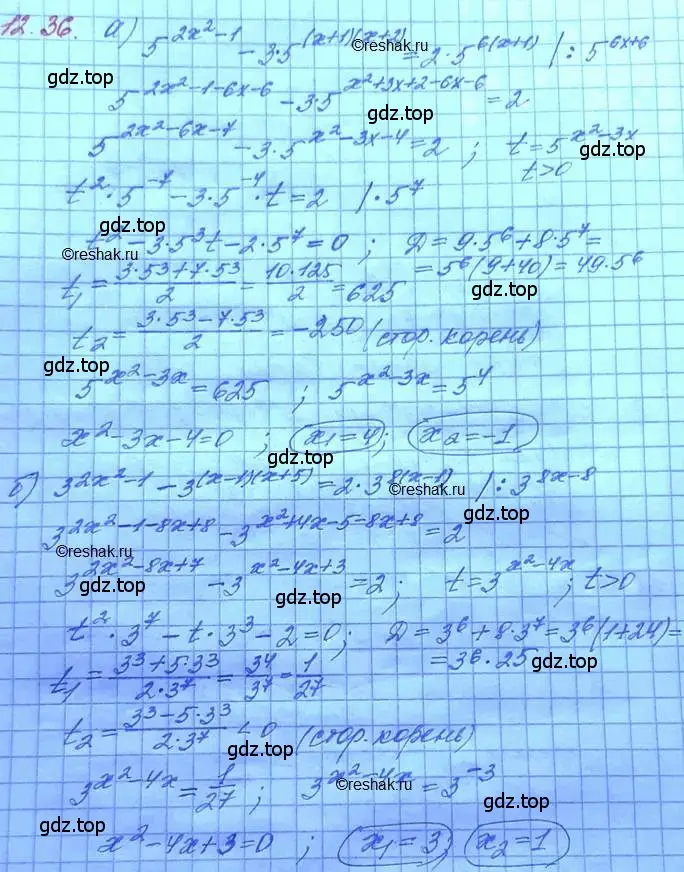 12.36. а) 5^(2x²-1) - 3·5^((x+1)(x+2)) = 2·5^(6(x+1)) /: 5^(6x+6)
©reshak.ru
gdz.top
gdz.top
5^(2x²-1-6x-6) - 3·5^(x²+3x+2-6x-6) = 2
gdz.top
5^(2x²-6x-7) - 3·5^(x²-3x-4) = 2 ; t = 5^(x²-3x)
gdz.top
t>0
t²·5^(-7) - 3·5^(-4)·t = 2 /·5^7
gdz.top
t² - 3·5³t - 2·5^7 = 0 ; Д = 9·5^6 + 8·5^7 =
©reshak.ru
= 5^6(9+40) = 49·5^6
t₁ = (3·5³+7·5³)/2 = (10·125)/2 = 625
gdz.top
t₂ = (3·5³-7·5³)/2 = -250 (стор. корень)
gdz.top
gdz.top
5^(x²-3x) = 625 ; 5^(x²-3x) = 5^4
x²-3x-4=0 ; x₁=4 ; x₂=-1
gdz.top
б) 3^(2x²-1) - 3^((x-1)(x+5)) = 2·3^(8(x-1)) /: 3^(8x-8)
©reshak.ru
3^(2x²-1-8x+8) - 3^(x²+4x-5-8x+8) = 2
©reshak.ru
3^(2x²-8x+7) - 3^(x²-4x+3) = 2 ; t = 3^(x²-4x) ; t>0
gdz.top
gdz.top
t²·3^7 - t·3³ - 2 = 0 ; Д = 3^6 + 8·3^7 = 3^6(1+24) =
= 3^6·25
gdz.top
t₁ = (3³+5·3³)/(2·3^7) = 3^4/3^7 = 1/27
t₂ = (3³-5·3³)/(2·3^7) < 0 (стор. корень)
gdz.top
3^(x²-4x) = 1/27 ; 3^(x²-4x) = 3^(-3)
©reshak.ru
gdz.top
gdz.top
x²-4x+3=0 ; x₁=3 x₂=1